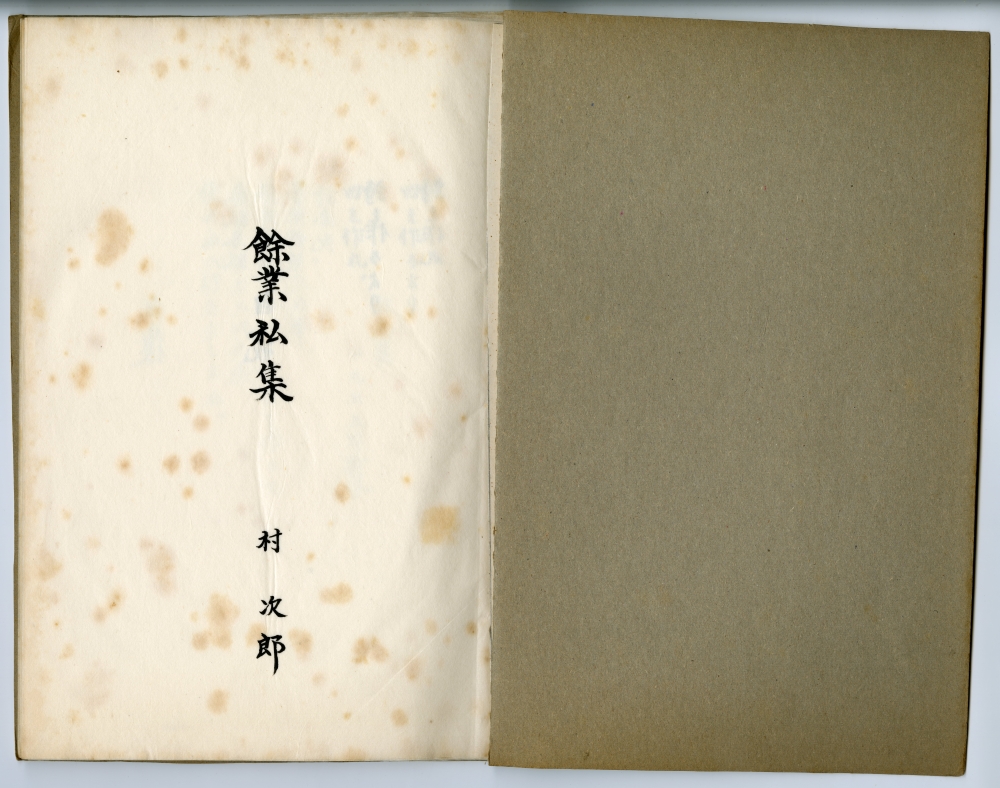 餘業私集
村次郎